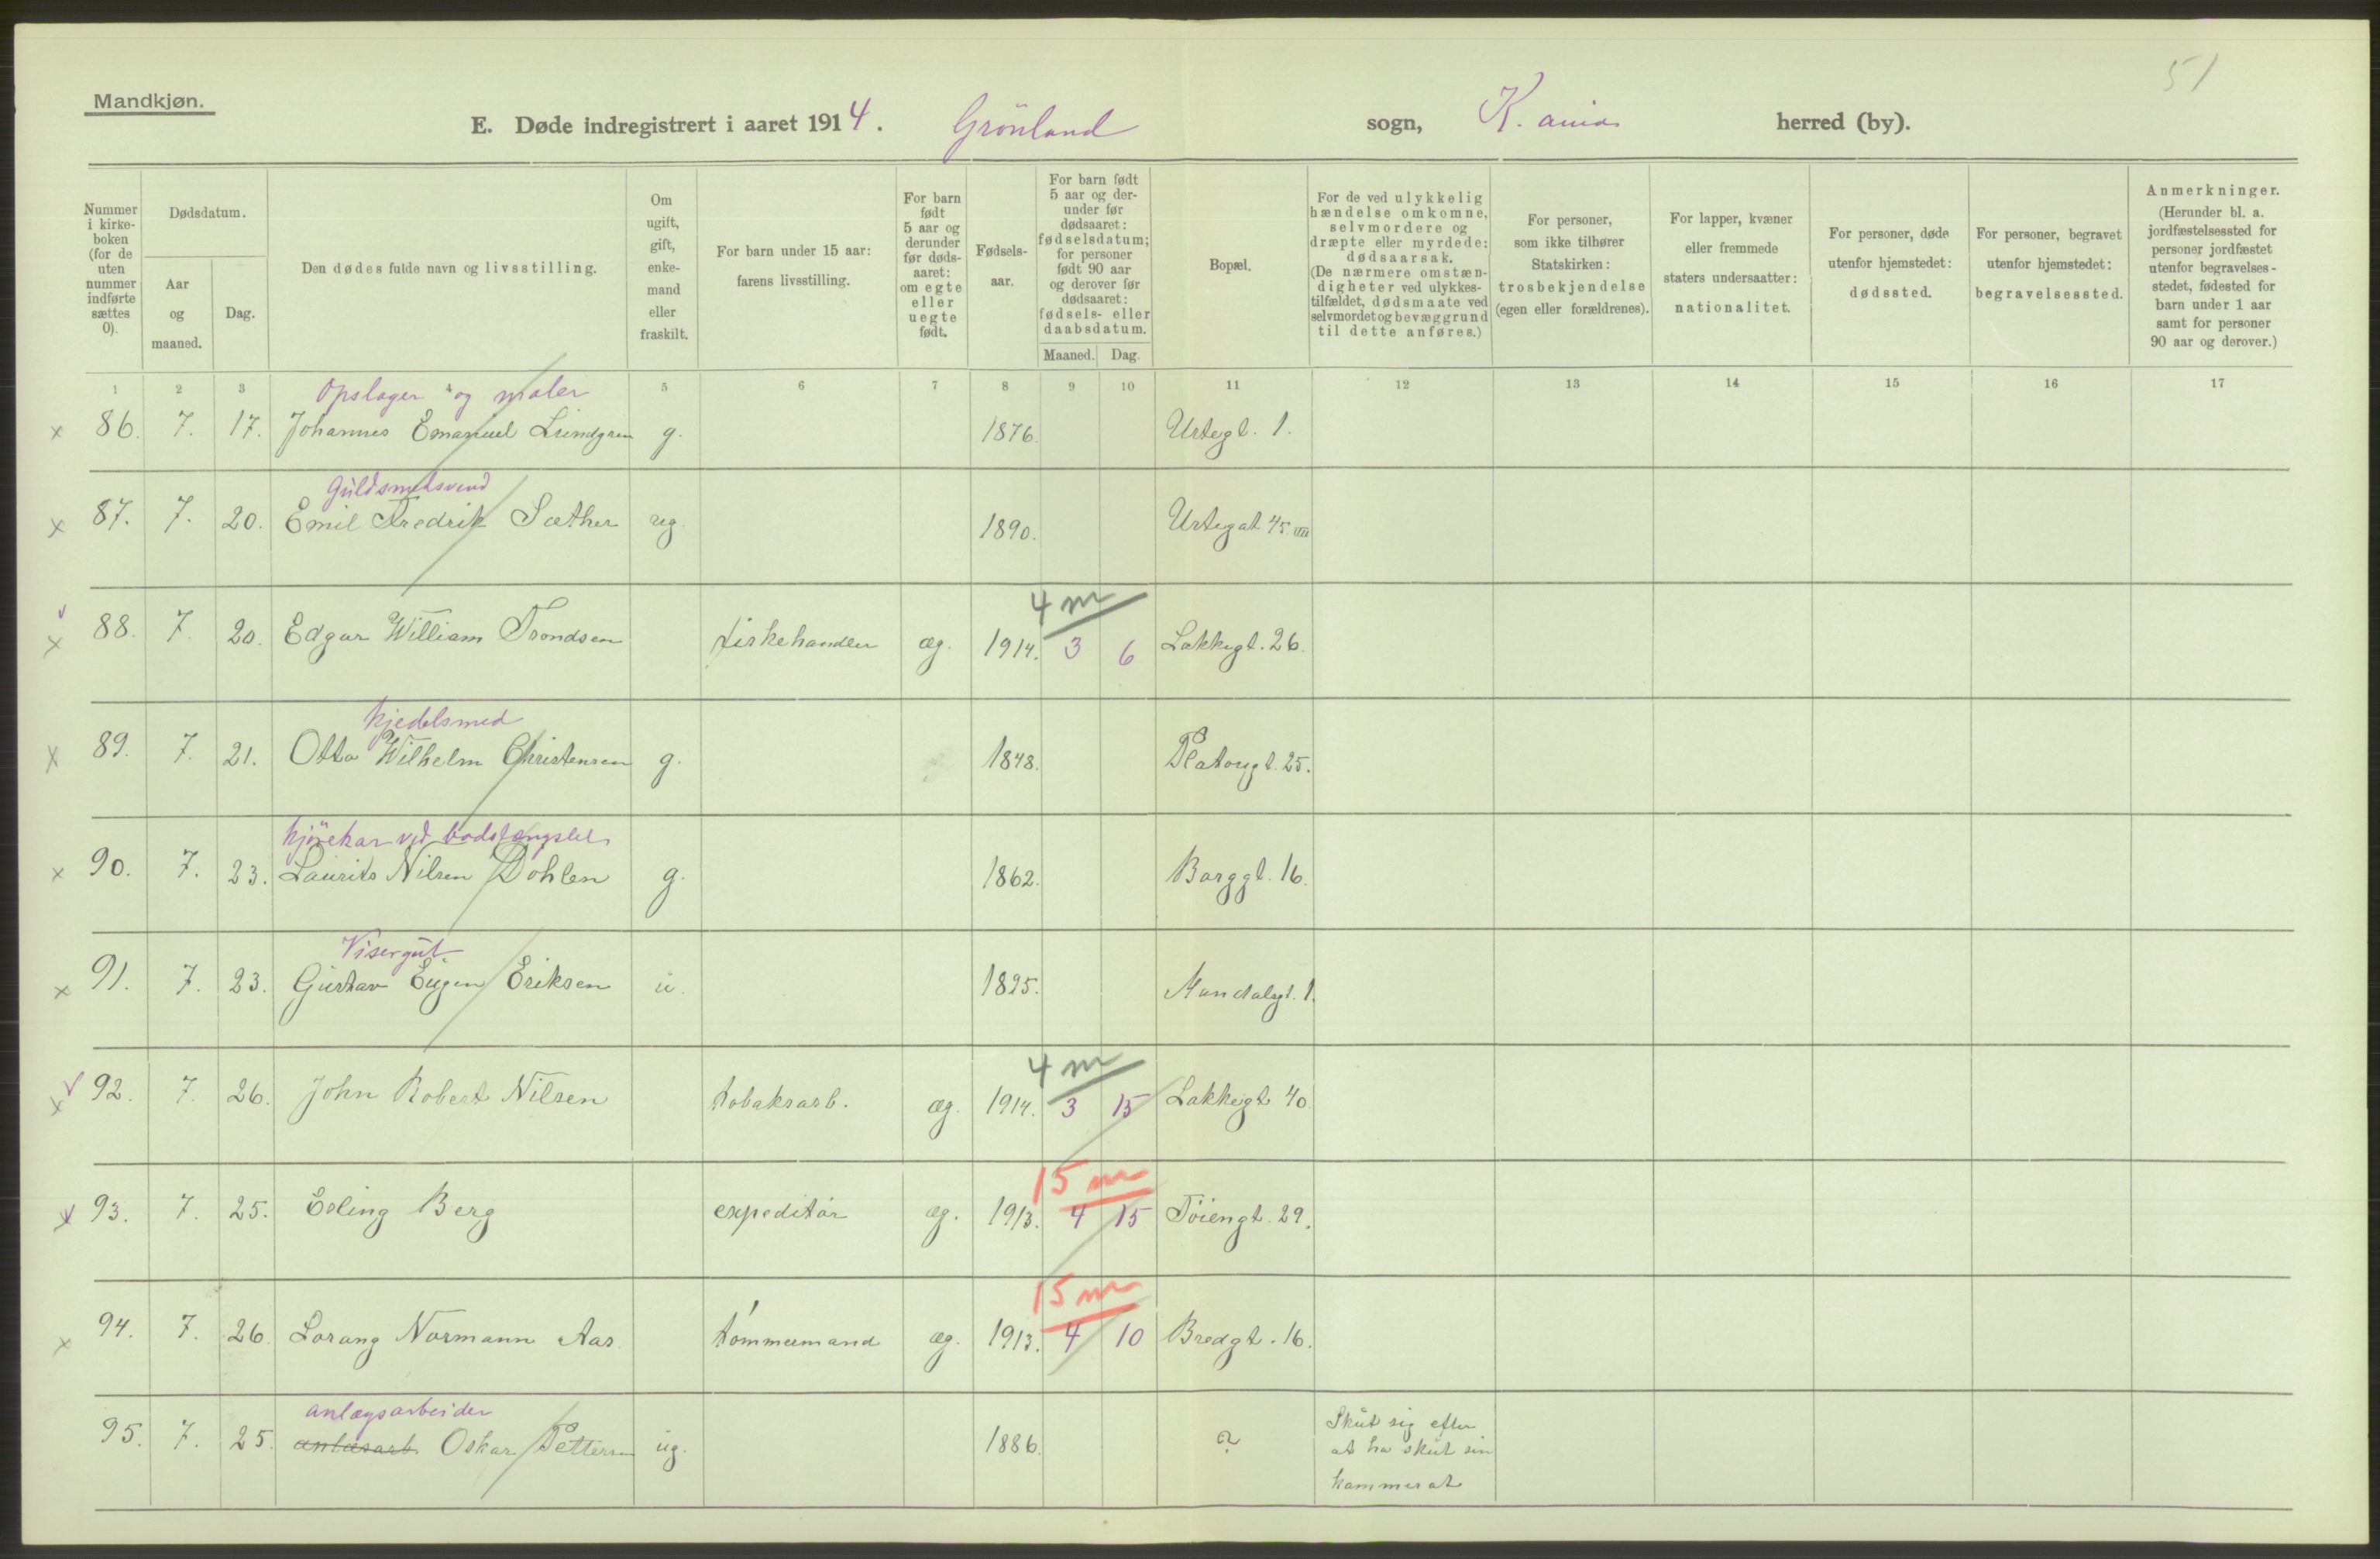 51
Mandkjøn.
E. Døde indregistrert i aaret 1914. Grönland sogn, K.ania herred (by).
Nummer i kirkeboken (for de uten nummer indførte sættes 0).
Dødsdatum.
Aar og maaned.
Dag.
Den dødes fulde navn og livsstilling.
Om ugift, gift, enkemand eller fraskilt.
For barn under 15 aar: farens livsstilling.
For barn født 5 aar og derunder før dødsaaret: om egte eller uegte født.
Fødselsaar.
For barn født 5 aar og derunder før dødsaaret: fødselsdatum; for personer født 90 aar og derover før dødsaaret: fødsels- eller daabsdatum.
Maaned. Dag.
Bopæl.
For de ved ulykkelig hændelse omkomne, selvmordere og dræpte eller myrdede: dødsaarsak. (De nærmere omstændigheter ved ulykkestilfældet, dødsmaate ved selvmordet og bevæggrund til dette anføres.)
For personer, som ikke tilhører Statskirken: trosbekjendelse (egen eller forældrenes).
For lapper, kvæner eller fremmede staters undersaatter: nationalitet.
For personer, døde utenfor hjemstedet: dødssted.
For personer, begravet utenfor hjemstedet: begravelsessted.
Anmerkninger. (Herunder bl. a. jordfæstelsessted for personer jordfæstet utenfor begravelsesstedet, fødested for barn under 1 aar samt for personer 90 aar og derover.)
1 2 3 4 5 6 7 8 9 10 11 12 13 14 15 16 17
Opslager og maler
x 86. 7. 17. Johannes Emanuel Lundgren g. 1876. Urtegt. 1.
Guldsmedsvend
x 87. 7. 20. Emil Fredrik Sæther ug. 1890. Urtegat 45. IIII
4 m
x 88. 7. 20. Edgar William Trondsen fiskehandler æg. 1914. 3 6 Lakkegt. 26.
kjedelsmed
x 89. 7. 21. Otto Wilhelm Christensen g. 1848. Platousgt. 25.
kjörekar ved bodsfængslet
x 90. 7. 23. Laurits Nilsen Dohlen g. 1862. Borggt. 16.
Visergut
x 91. 7. 23. Gustav Eugen Eriksen u. 1895. Mandalsgt. 1.
4 m
x 92. 7. 26. John Robert Nilsen tobaksarb. æg. 1914. 3 15 Lakkegt 40
15 m
x 93. 7. 25. Erling Berg expeditör æg. 1913. 4 15 Töiengt. 29.
15 m
x 94. 7. 26. Lorang Normann Aas. tömmermand æg. 1913. 4 10 Bredgt. 16.
anlægsarbeider
95. 7. 25. anlæsarb. Oskar Pettersen ug. 1886. ? Skut sig efter
at ha skut sin
kammerat